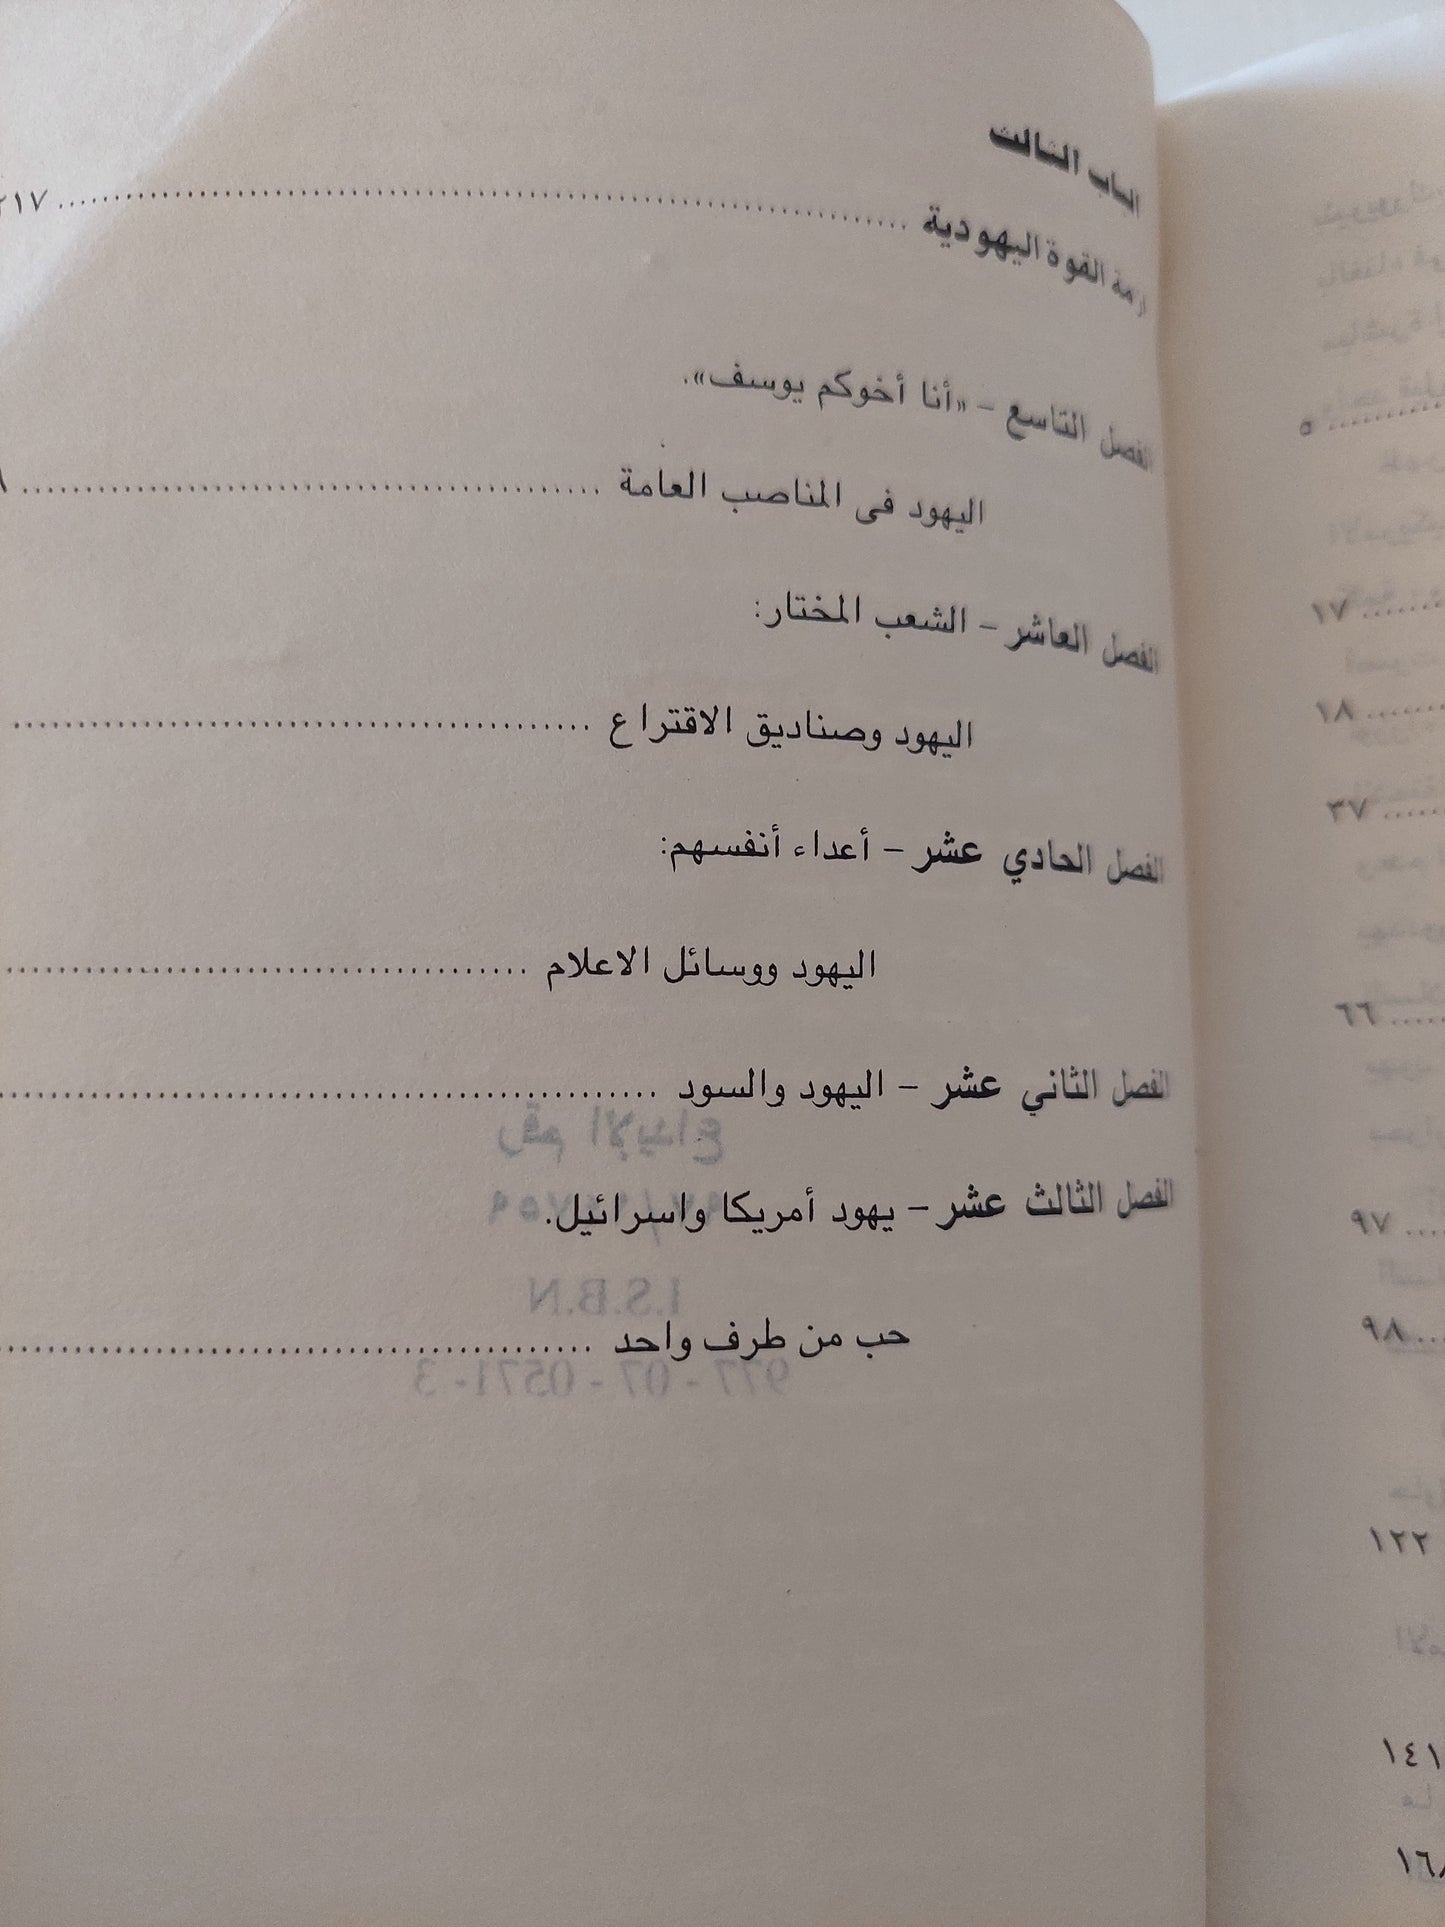 الباب الثالث
أزمة القوة اليهودية ........ ٢١٧
الفصل التاسع – «أنا أخوكم يوسف».
اليهود فى المناصب العامة ........
الفصل العاشر – الشعب المختار:
اليهود وصناديق الاقتراع ........
الفصل الحادي عشر – أعداء أنفسهم:
اليهود ووسائل الاعلام ........
الفصل الثاني عشر – اليهود والسود ........
الفصل الثالث عشر – يهود أمريكا واسرائيل.
حب من طرف واحد ........
رقم الإيداع
I.S.B.N
977 - 07 - 0571- 3
٥
١٧
١٨
٣٧
٦٦
٩٧
٩٨
١٢٢
١٤١